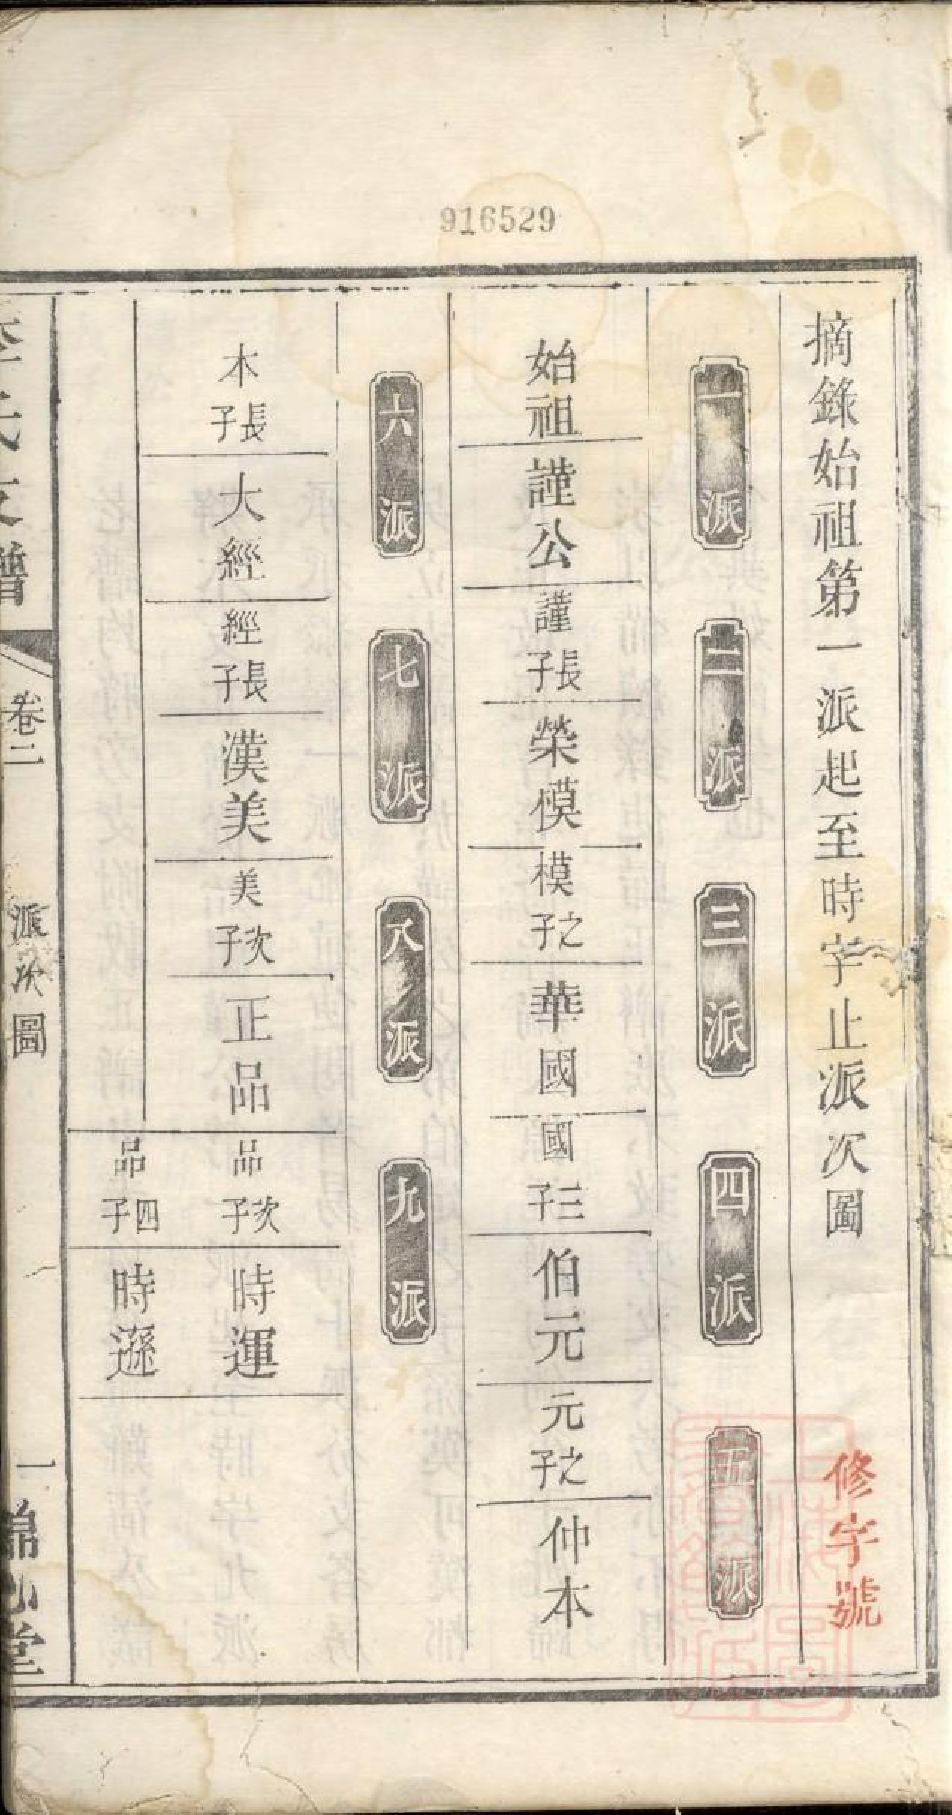 916529
摘錄始祖第一派起至時字止派次圖
修字號
一派 二派 三派 四派 五派
始祖 謹公 謹長子 榮模 模之子 華國 國三子 伯元 元之子 仲本
六派 七派 八派 九派
本長子 大經 經長子 漢美 美次子 正品 品次子 時運
品四子 時遜
李氏支譜 卷二 派次圖 一 錦心堂